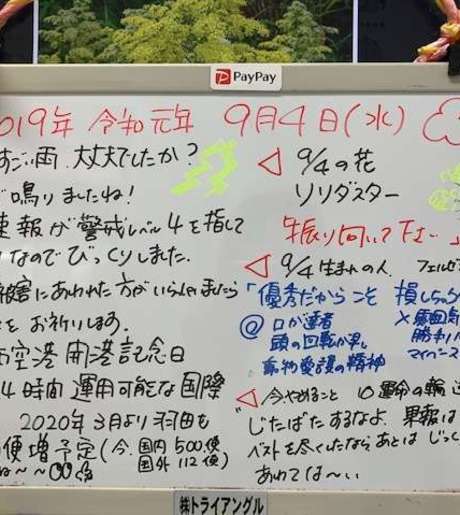 PayPay
2019年 令和元年 9月4日(水)
すごい雨、大丈夫でしたか?
鳴りましたね!
速報が警戒レベル4を指して
なのでびっくりしました。
被害にあわれた方がいらしゃいましたら
をお祈りします。
空港開港記念日
4時間 運用可能な国際
2020年3月より羽田も
便増予定(今、国内500便
国外112便)
ね〜〜
◁ 9/4の花
リリダスター
振り向いて下さい
◁ 9/4生まれの人
「優秀だからこと 損しちゃう
@ 口が達者
頭の回転が早し
動物愛護の精神
× 雰囲気
勝利
マイペース
◁ 今やめること 10 運命の輪
じたばたするなよ、果報は
ベストを尽くしたならあとは じっく
あわては〜い
㈱トライアングル